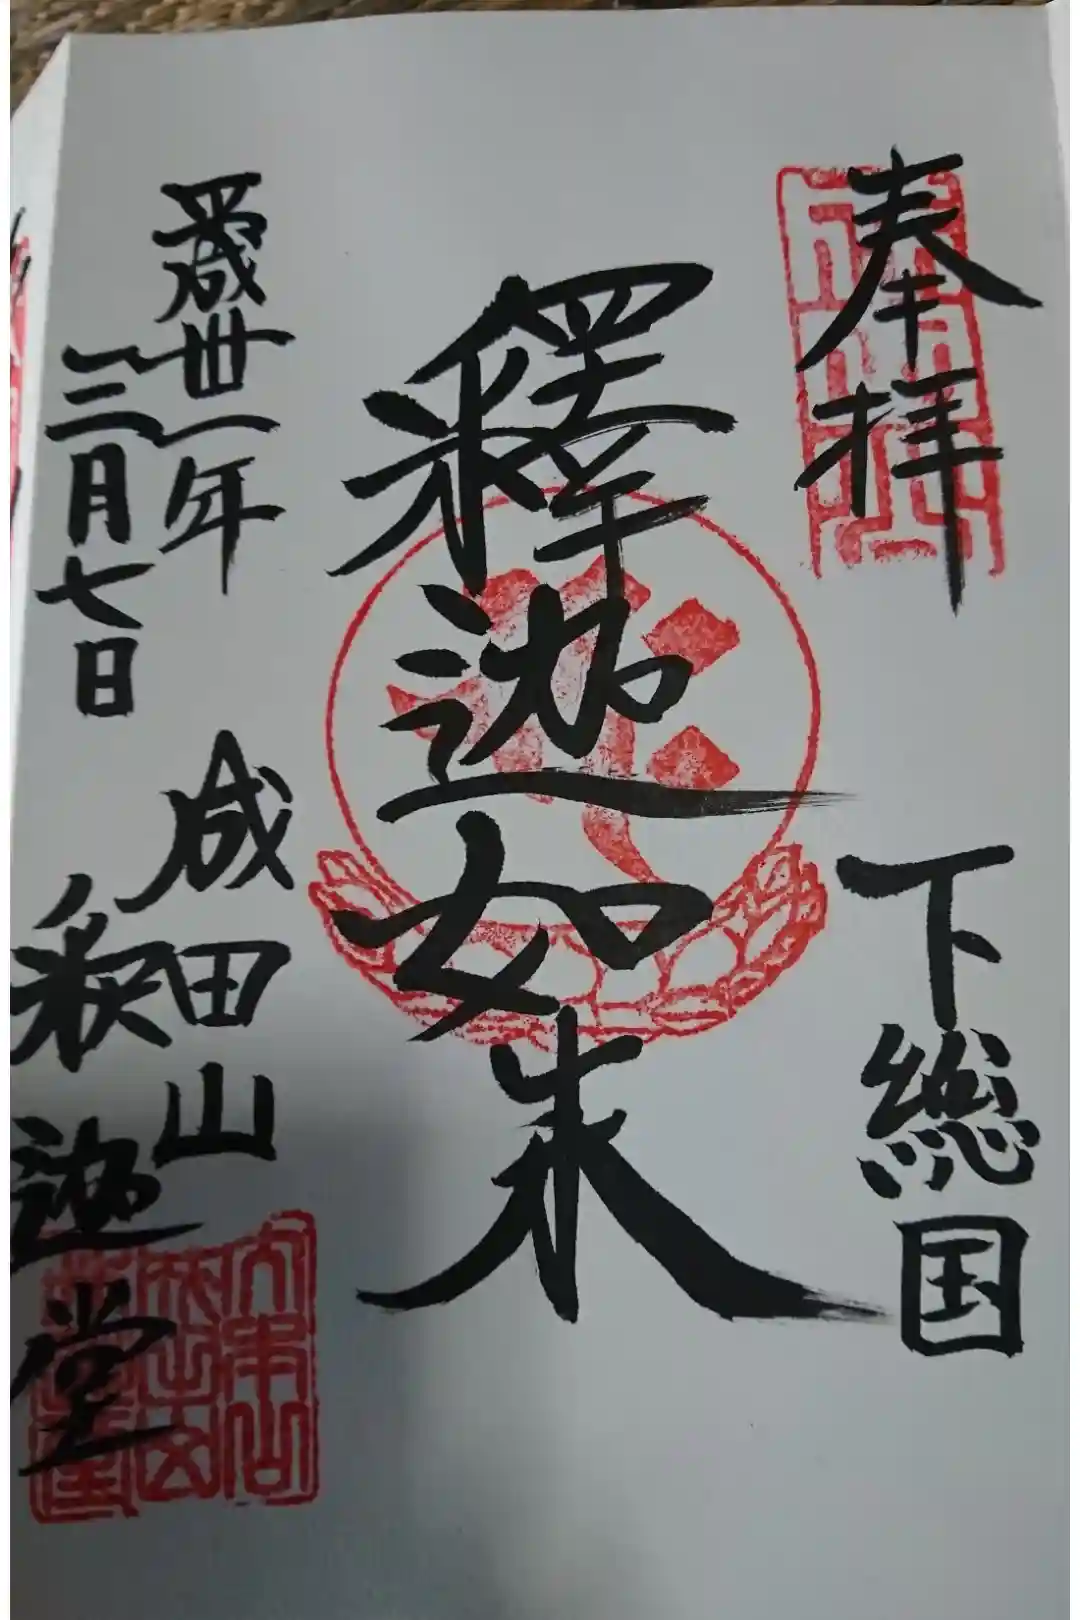 奉拝
下総国
釋迦如来
平成卅一年
三月七日
成田山
釈迦堂